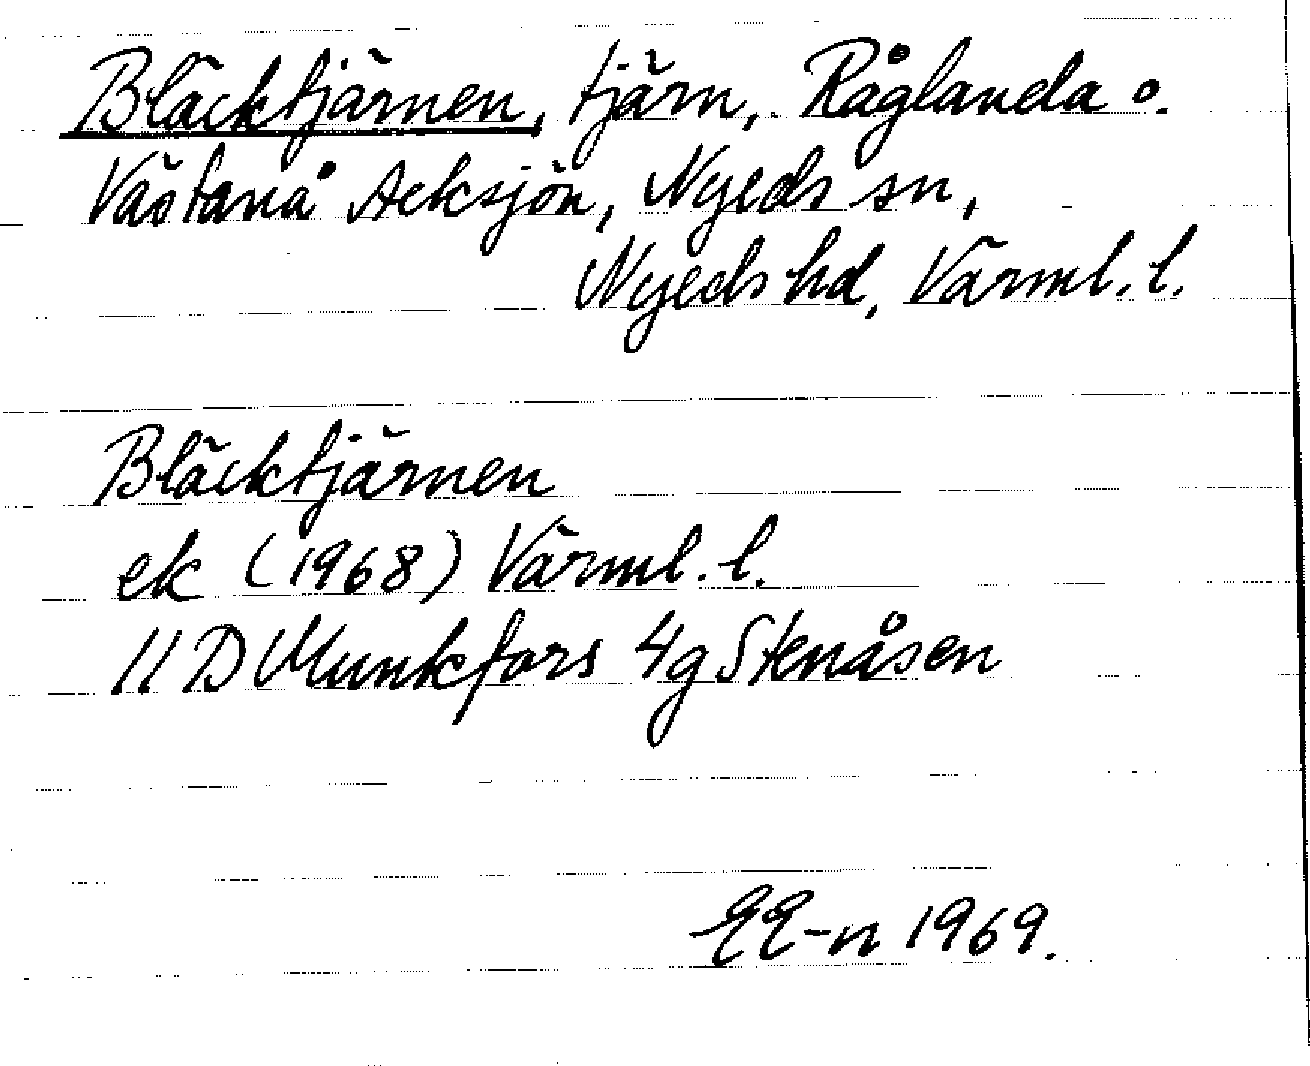 Bläcktjärnen, tjärn, Råglanda o.
Västanå Acksjön, Nyeds sn,
Nyeds hd, Värml. l.
Bläcktjärnen
ek (1968) Värml. l.
11 D Munkfors 4g Stenåsen
EE-n 1969.